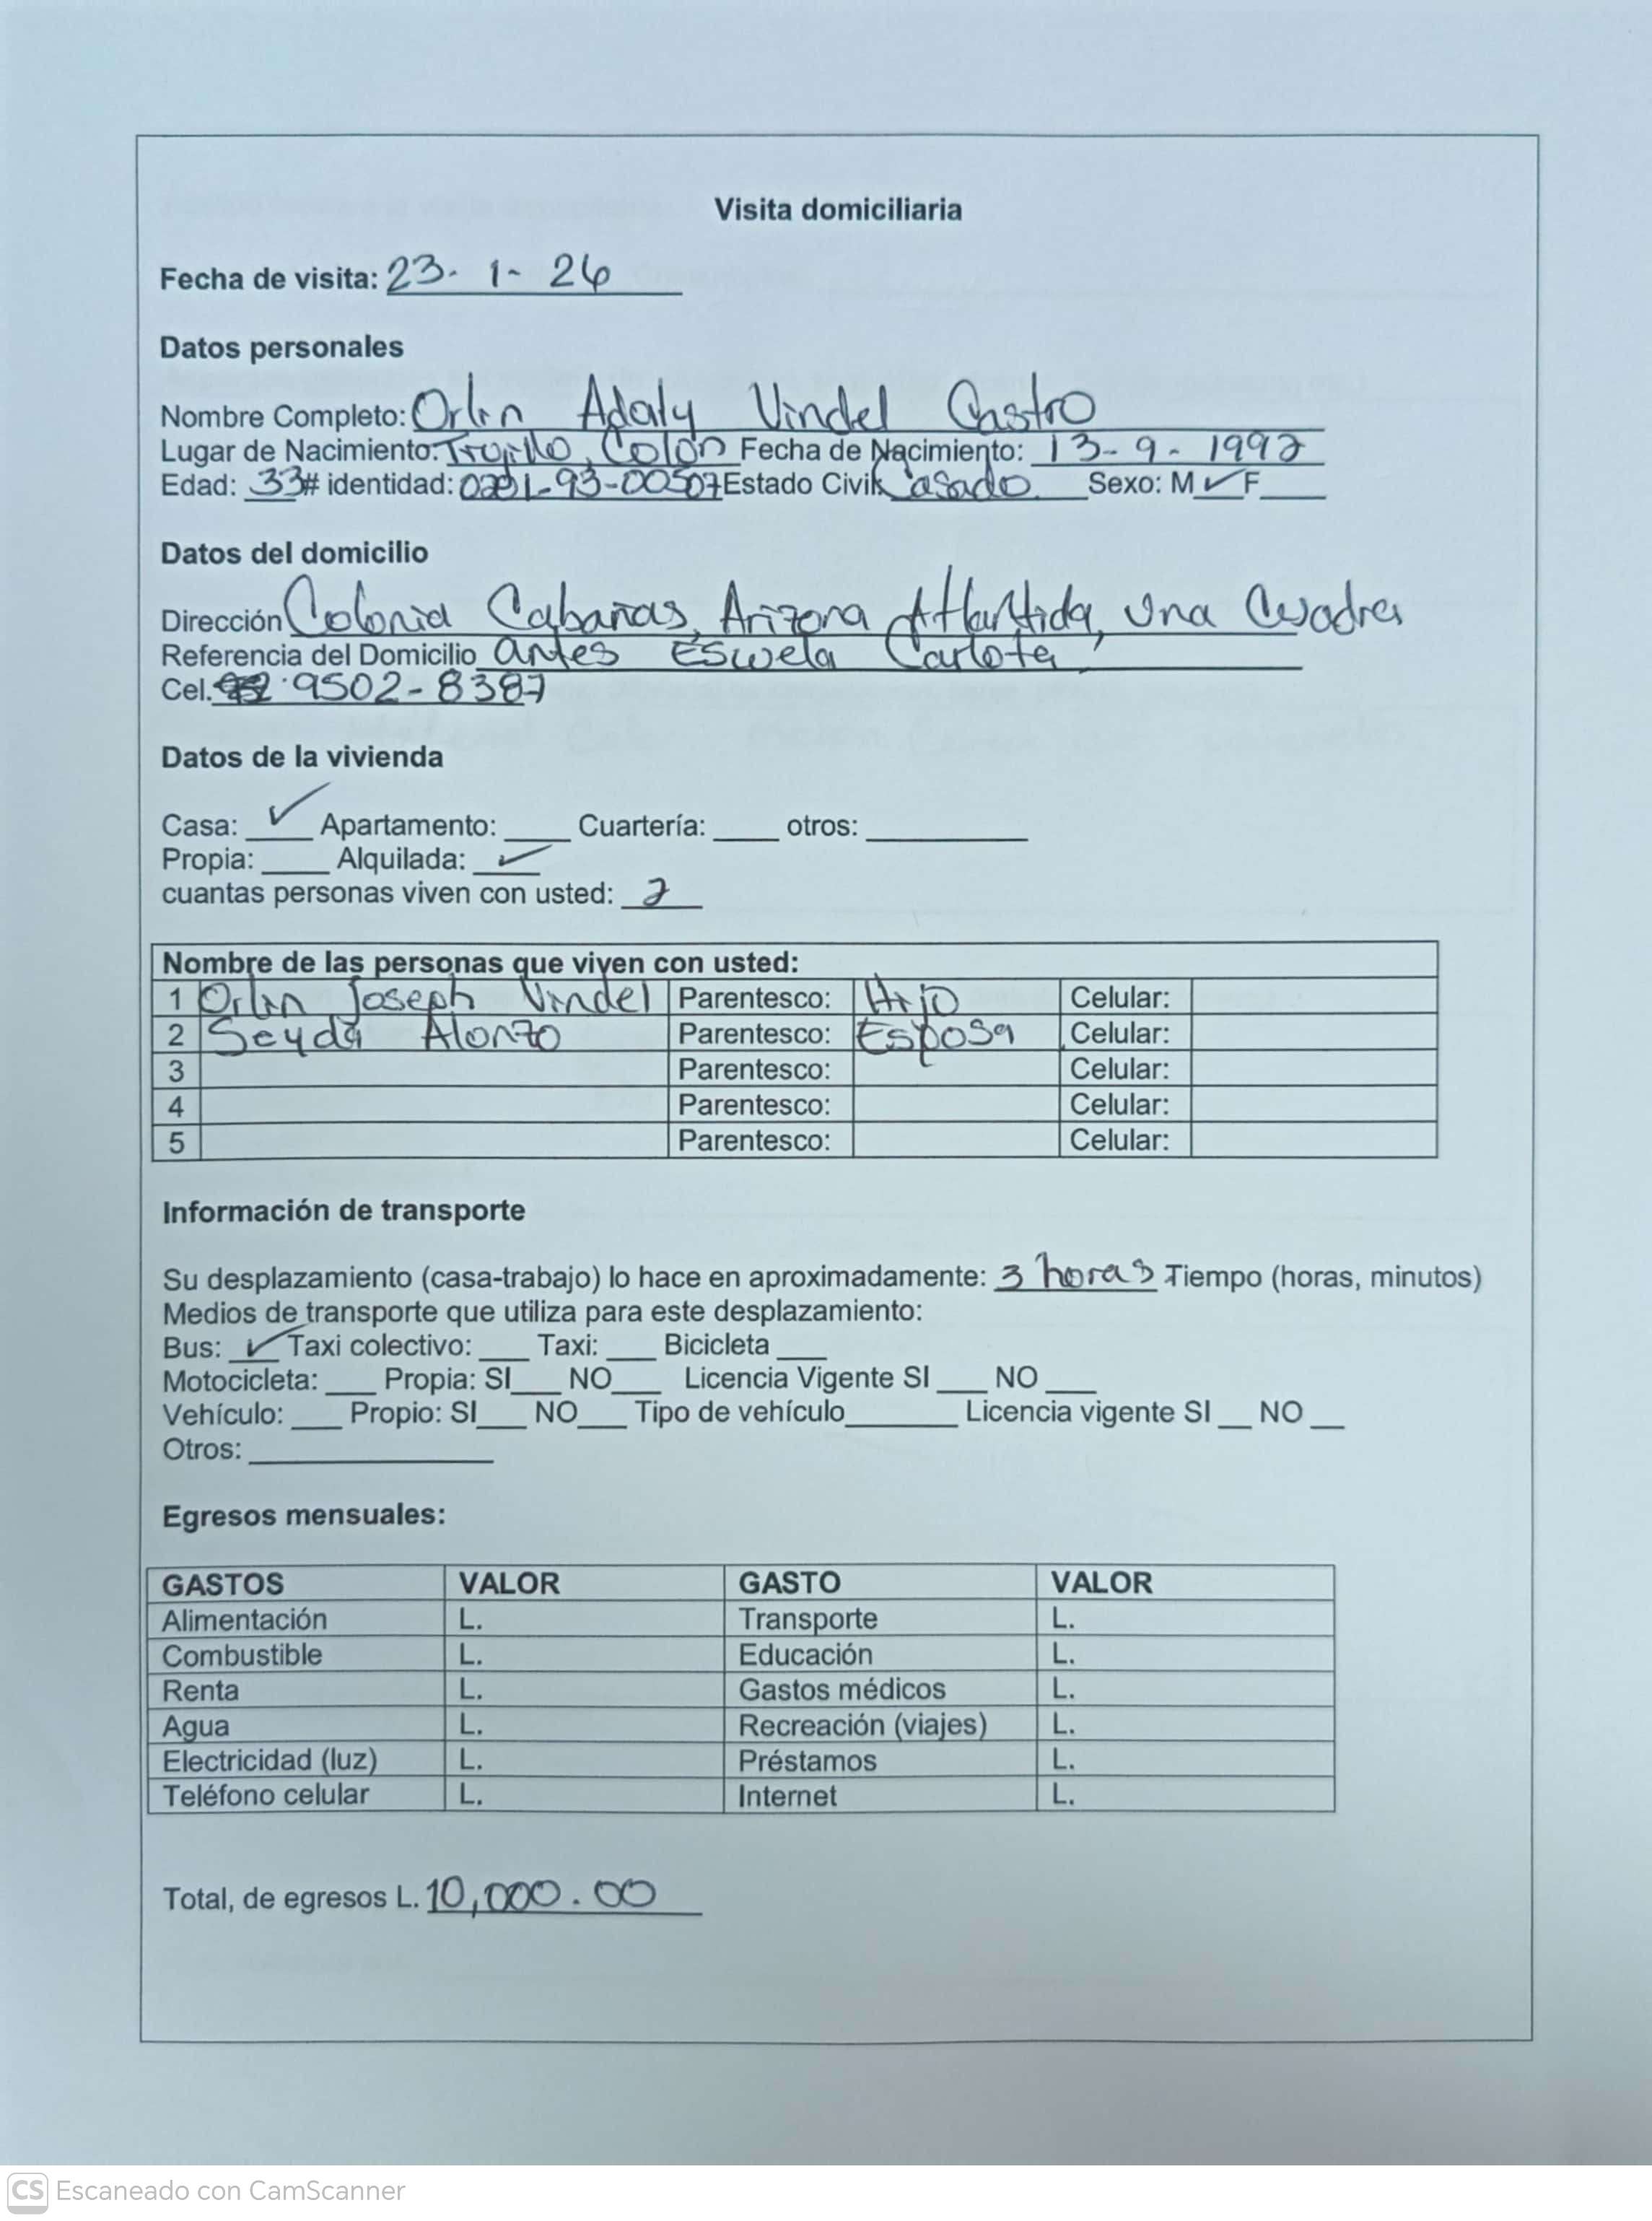 Visita domiciliaria
Fecha de visita: 23. 1- 26
Datos personales
Nombre Completo: Orlin Adaly Vindel Castro
Lugar de Nacimiento: Trujillo, Colón Fecha de Nacimiento: 13-9-1992
Edad: 33 # identidad: 0201-93-00507 Estado Civil: Casado Sexo: M ✓ F____
Datos del domicilio
Dirección Colonia Cabañas, Arizona Atlantida, una Cuadra
Referencia del Domicilio antes Escuela Carlota
Cel. 9502-8387
Datos de la vivienda
Casa: ✓ Apartamento: ____ Cuartería: ____ otros: ____
Propia: ____ Alquilada: ✓
cuantas personas viven con usted: 2
Nombre de las personas que viven con usted:
1 Orlin Joseph Vindel Parentesco: Hijo Celular:
2 Seyda Alonzo Parentesco: Esposa Celular:
3 Parentesco: Celular:
4 Parentesco: Celular:
5 Parentesco: Celular:
Información de transporte
Su desplazamiento (casa-trabajo) lo hace en aproximadamente: 3 horas Tiempo (horas, minutos)
Medios de transporte que utiliza para este desplazamiento:
Bus: ✓ Taxi colectivo: ____ Taxi: ____ Bicicleta ____
Motocicleta: ____ Propia: SI____ NO____ Licencia Vigente SI ____ NO ____
Vehículo: ____ Propio: SI____ NO____ Tipo de vehículo____ Licencia vigente SI __ NO __
Otros: ____
Egresos mensuales:
GASTOS VALOR GASTO VALOR
Alimentación L. Transporte L.
Combustible L. Educación L.
Renta L. Gastos médicos L.
Agua L. Recreación (viajes) L.
Electricidad (luz) L. Préstamos L.
Teléfono celular L. Internet L.
Total, de egresos L. 10,000.00
CS Escaneado con CamScanner